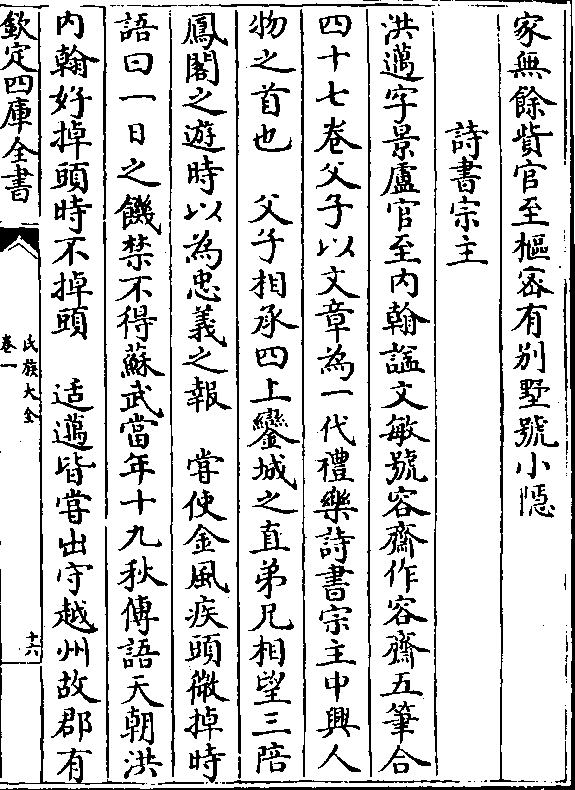 家無餘貲官至樞密有別墅號小隱
詩書宗主
洪邁字景廬官至內翰諡文敏號容齋作容齋五筆合
四十七卷父子以文章為一代禮樂詩書宗主中興人
物之首也　父子相承四上鑾城之直弟兄相望三陪
鳳閣之遊時以為忠義之報　甞使金風疾頭微掉時
語曰一日之饑禁不得蘇武當年十九秋傳語天朝洪
內翰好掉頭時不掉頭　适邁皆甞出守越州故郡有
欽定四庫全書
氏族大全
卷一
十六